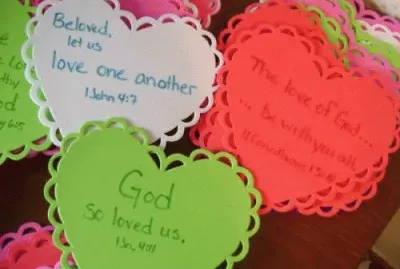 Beloved,
let us
love one another
1 John 4:7
The love of God...
... be with you all.
God
so loved us.
1 Jn. 4:11